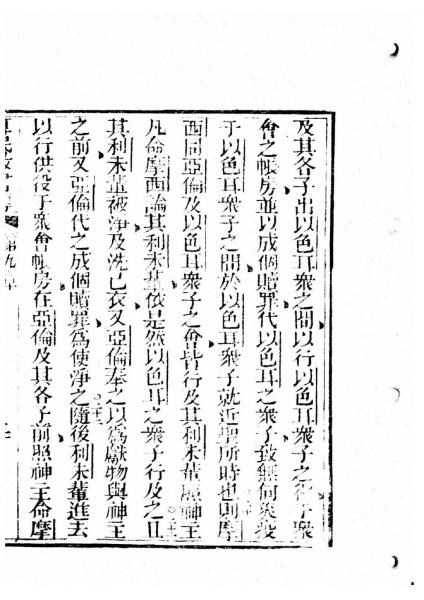 及其各子出以色耳衆之間以行以色耳衆子之役于衆
會之帳房並以成個贖罪代以色耳之衆子致無何災疫
于以色耳衆子之間於以色耳衆子就近聖所時也則摩
西同亞倫及以色耳衆子之會皆行及其利未輩照神主
凡命摩西論其利未輩依是然以色耳之衆子行及之且
其利未輩被淨及洗已衣又亞倫奉之以爲獻物與神主
之前又亞倫代之成個贖罪爲使淨之隨後利未輩進去
以行供役于衆會帳房在亞倫及其各子前照神主命摩
第九章